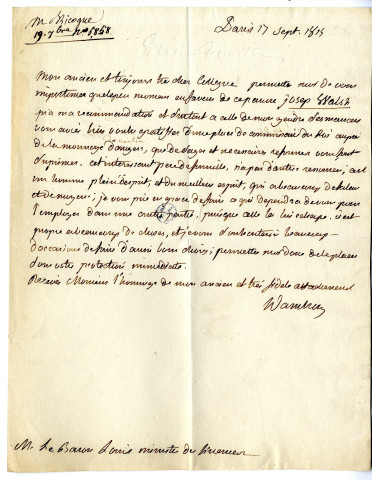 Mr Bricogne
19. 7bre No 5858
Paris 17 sept. 1815
Mon ancien et toujours tres cher Collegue permettez moi de vous
importuner quelques momens en faveur de ce pauvre joseph Walsh
qui a ma recommandation et surtout a celle de mon gendre d'esmenars
vous aviez bien voulu gratifier d'une place de commissaire du Roi aupres
de la monnaye d'angers, que de sages et necessaires reformes vous font
suprimer. cet interessant pere de famille, n'a pas d'autres ressources; c'est
un homme plein d'esprit, et du meilleur esprit, qui a beaucoup de talens
et de moyens; je vous prie en grace de faire ce qui dependra de vous pour
l'employer dans une autre partie, puisque celle la lui echape. il est
propre a beaucoup de choses, et je vous
d'occasions de faire d'aussi bons choix; permettez moi donc de le placer
sous votre protection immediate.
Recevez Monsieur l'hommage de mon ancien et très fidele attachement
M. Le Baron Louis ministre des finances